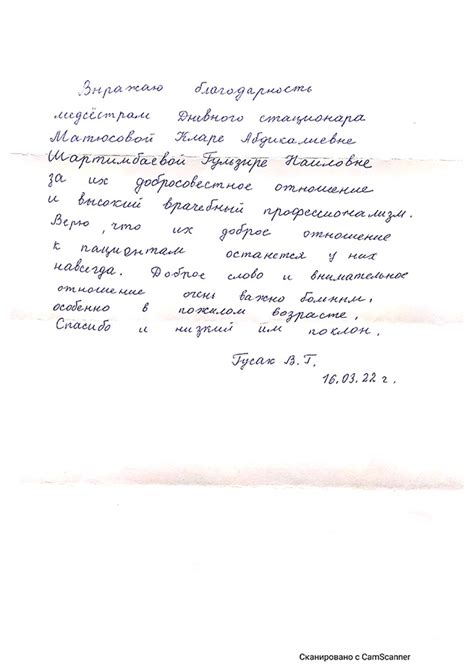 Выражаю благодарность
медсёстрам Дневного стационара
Матюсовой Кларе Абдикалиевне
Шартимбаевой Гульзире Наиловне
за их добросовестное отношение
и высокий врачебный профессионализм.
Верю, что их доброе отношение
к пациентам останется у них
навсегда. Доброе слово и внимательное
отношение очень важно больным,
особенно в пожилом возрасте.
Спасибо и низкий им поклон.
Гусак В.Г.
16.03.22 г.
Сканировано с CamScanner